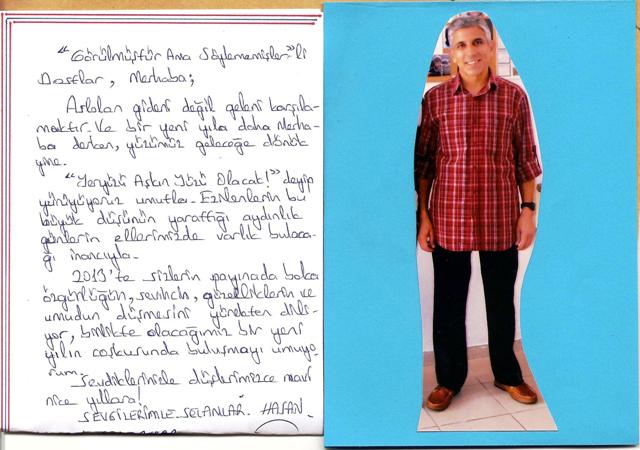 "Görülmüştür Ama Söylenmemişler"li
Dostlar, Merhaba;
Aslolan gideni değil geleni karşıla-
maktır. Ve bir yeni yıla daha Merha-
ba derken, yüzümüz geleceğe dönük
yine.
"Yeryüzü Aşkın Yüzü Olacak!" deyip
yürüyoruz umutla. Ezilenlerin bu
büyük düşünün yarattığı aydınlık
günlerin ellerimizde varlık bulaca-
ğı inancıyla.
2013'te sizlerin payınada bolca
özgürlüğün, sevincin, güzelliklerin ve
umudun düşmesini yürekten dili-
yor, birlikte olacağımız bir yeni
yılın coşkusunda buluşmayı umuyo-
rum.
Sevdiklerinizle düşlerimizce mavi
nice yıllara!
SEVGİLERİMLE SELAMLAR. HASAN.